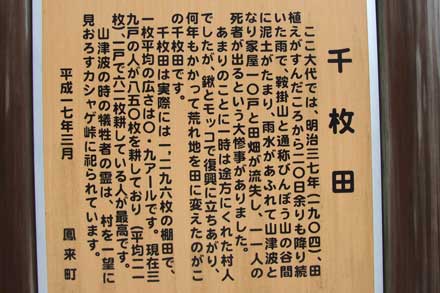 千枚田
ここ大代では、明治三七年(一九〇四)、田
植えがすんだころから二〇日余りも降り続
いた雨で、鞍掛山と通称びんぼう山の谷間
に泥土がたまり、雨水があふれて山津波と
なり家屋一〇戸と田畑が流失し、一一人の
死者が出るという大惨事がありました。
あまりのことに一時は途方にくれた村人
でしたが、鍬とモッコで復興に立ちあがり、
何年もかかって荒れ地を田に変えたのがこ
の千枚田です。
千枚田は実際には一、二九六枚の棚田で、
一枚平均の広さは〇・九アールです。現在三
九戸の人が八五〇枚を耕しており(平均二一
枚)、一戸で六一枚耕している人が最高です。
山津波の時の犠牲者の霊は、村を一望に
見おろすカシャゲ峠に祀られています。
平成一七年三月
鳳来町